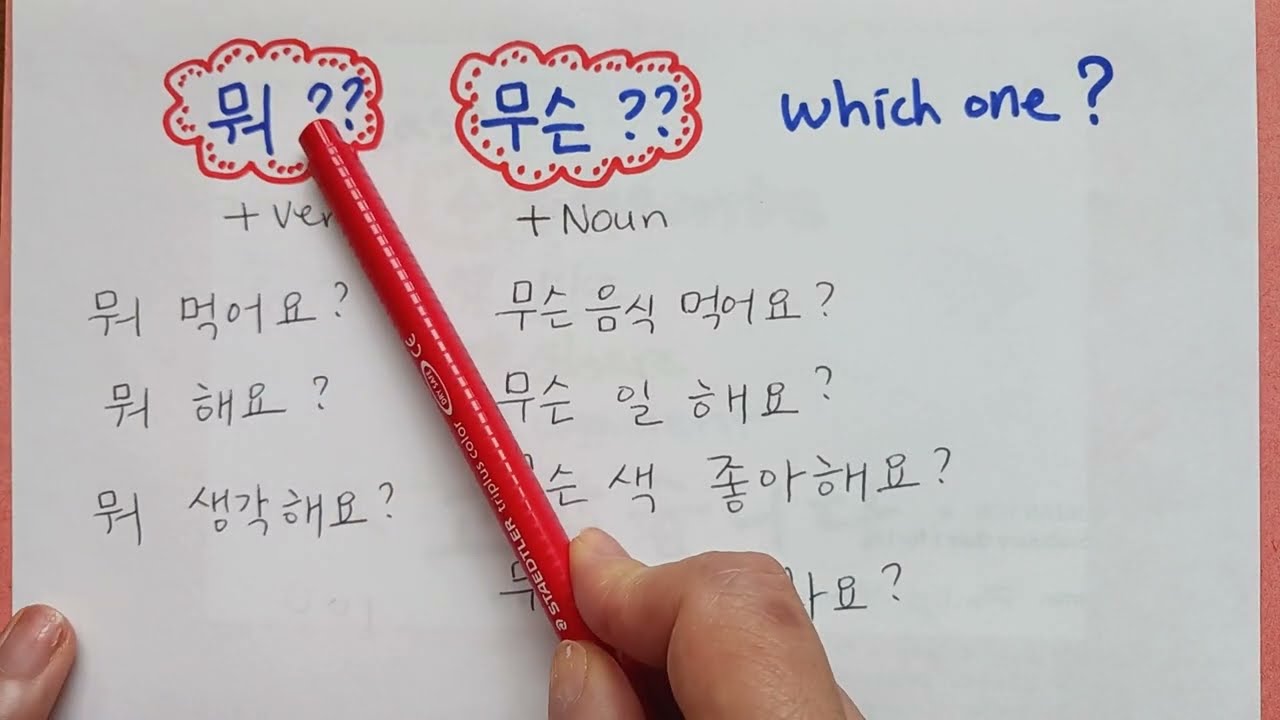 뭐 ??
무슨 ??
which one ?
+ Ver
+ Noun
뭐 먹어요 ?
무슨 음식 먹어요 ?
뭐 해요 ?
무슨 일 해요 ?
뭐 생각해요 ?
슨 색 좋아해요 ?
요 ?
STAEDTLER triplus color
DRY SAFE
CE